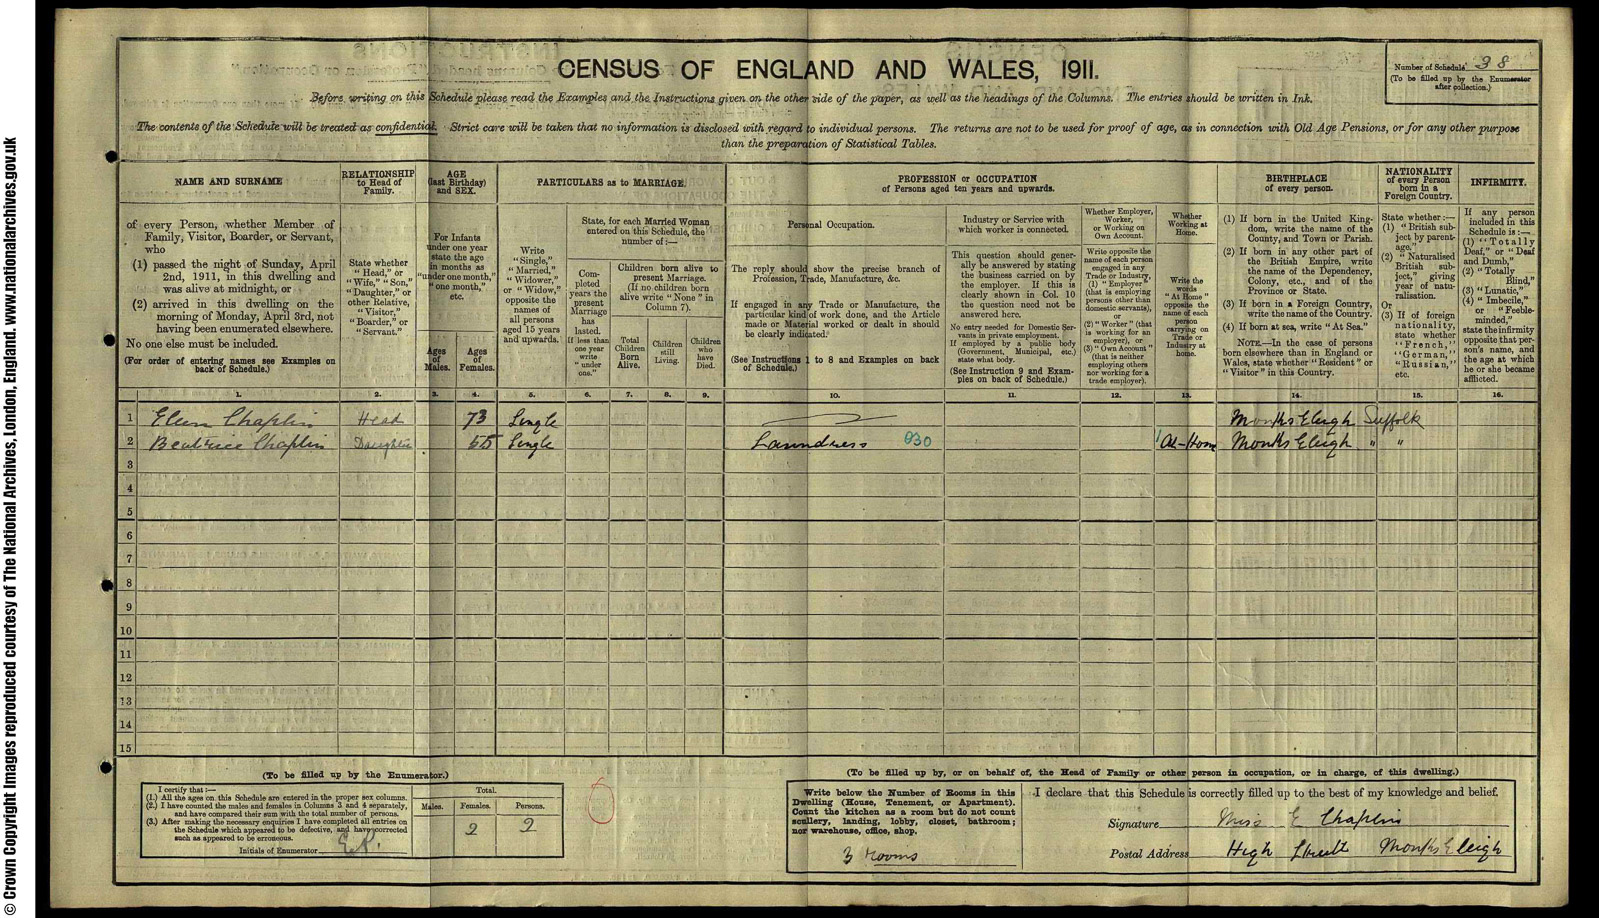 © Crown Copyright Images reproduced courtesy of The National Archives, London, England. www.nationalarchives.gov.uk
CENSUS OF ENGLAND AND WALES, 1911.
Number of Schedule 38
(To be filled up by the Enumerator after collection.)
Before writing on this Schedule please read the Examples and the Instructions given on the other side of the paper, as well as the headings of the Columns. The entries should be written in Ink.
The contents of the Schedule will be treated as confidential. Strict care will be taken that no information is disclosed with regard to individual persons. The returns are not to be used for proof of age, as in connection with Old Age Pensions, or for any other purpose
than the preparation of Statistical Tables.
NAME AND SURNAME
of every Person, whether Member of
Family, Visitor, Boarder, or Servant,
who
(1) passed the night of Sunday, April
2nd, 1911, in this dwelling and
was alive at midnight, or
(2) arrived in this dwelling on the
morning of Monday, April 3rd, not
having been enumerated elsewhere.
No one else must be included.
(For order of entering names see Examples on
back of Schedule.)
RELATIONSHIP
to Head of
Family.
State whether
"Head," or
"Wife," "Son,"
"Daughter," or
other Relative,
"Visitor,"
"Boarder," or
"Servant."
AGE
(last Birthday)
and SEX.
For Infants
under one year
state the age
in months as
"under one month,"
"one month,"
etc.
Ages
of
Males.
Ages
of
Females.
PARTICULARS as to MARRIAGE.
Write
"Single,"
"Married,"
"Widower,"
or "Widow,"
opposite the
names of
all persons
aged 15 years
and upwards.
State, for each Married Woman
entered on this Schedule, the
number of:—
Completed
years the
present
Marriage
has
lasted.
If less than
one year
write
"under
one."
Children born alive to
present Marriage.
(If no children born
alive write "None" in
Column 7).
Total
Children
Born
Alive.
Children
still
Living.
Children
who
have
Died.
PROFESSION or OCCUPATION
of Persons aged ten years and upwards.
Personal Occupation.
The reply should show the precise branch of
Profession, Trade, Manufacture, &c.
If engaged in any Trade or Manufacture, the
particular kind of work done, and the Article
made or Material worked or dealt in should
be clearly indicated.
(See Instructions 1 to 8 and Examples on back
of Schedule.)
Industry or Service with
which worker is connected.
This question should generally
be answered by stating
the business carried on by
the employer. If this is
clearly shown in Col. 10
the question need not be
answered here.
No entry needed for Domestic Servants
in private employment.
If employed by a public body
(Government, Municipal, etc.)
state what body.
(See Instruction 9 and Examples
on back of Schedule.)
Whether Employer,
Worker,
or Working on
Own Account.
Write opposite the
name of each person
engaged in any
Trade or Industry,
(1) "Employer"
(that is employing
persons other than
domestic servants),
or
(2) "Worker" (that
is working for an
employer), or
(3) "Own Account"
(that is neither
employing others
nor working for a
trade employer).
Whether
Working at
Home.
Write the
words
"At Home"
opposite the
name of each
person
carrying on
Trade or
Industry at
home.
BIRTHPLACE
of every person.
(1) If born in the United Kingdom,
write the name of the
County, and Town or Parish.
(2) If born in any other part of
the British Empire, write
the name of the Dependency,
Colony, etc., and of the
Province or State.
(3) If born in a Foreign Country,
write the name of the Country.
(4) If born at sea, write "At Sea."
NOTE.—In the case of persons
born elsewhere than in England or
Wales, state whether "Resident" or
"Visitor" in this Country.
NATIONALITY
of every Person
born in a
Foreign Country.
State whether:—
(1) "British subject
by parentage,"
(2) "Naturalised
British subject,"
giving
year of naturalisation.
Or
(3) If of foreign
nationality,
state whether
"French,"
"German,"
"Russian,"
etc.
INFIRMITY.
If any person
included in this
Schedule is:—
(1) "Totally
Deaf," or "Deaf
and Dumb,"
(2) "Totally
Blind,"
(3) "Lunatic,"
(4) "Imbecile,"
or "Feeble-minded,"
state the infirmity
opposite that person's
name, and
the age at which
he or she became
afflicted.
1. 2. 3. 4. 5. 6. 7. 8. 9. 10. 11. 12. 13. 14. 15. 16.
1 Ellen Chaplin Head 73 Single Monks Eleigh Suffolk
2 Beatrice Chaplin Daughter 55 Single Laundress 030 At-Home Monks Eleigh " "
3
4
5
6
7
8
9
10
11
12
13
14
15
(To be filled up by the Enumerator.)
I certify that:—
(1.) All the ages on this Schedule are entered in the proper sex columns.
(2.) I have counted the males and females in Columns 3 and 4 separately,
and have compared their sum with the total number of persons.
(3.) After making the necessary enquiries I have completed all entries on
the Schedule which appeared to be defective, and have corrected
such as appeared to be erroneous.
Initials of Enumerator
Total.
Males. Females. Persons.
2 2
(To be filled up by, or on behalf of, the Head of Family or other person in occupation, or in charge, of this dwelling.)
Write below the Number of Rooms in this
Dwelling (House, Tenement, or Apartment).
Count the kitchen as a room but do not count
scullery, landing, lobby, closet, bathroom;
nor warehouse, office, shop.
3 rooms
I declare that this Schedule is correctly filled up to the best of my knowledge and belief.
Signature Miss E Chaplin
Postal Address High Street Monks Eleigh